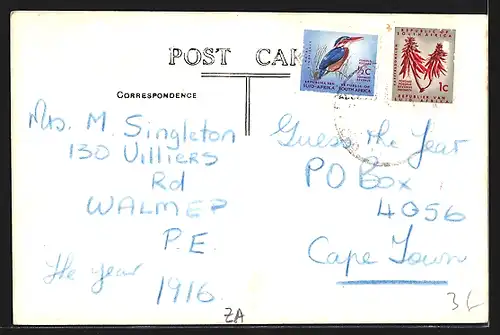 POST CAR
CORRESPONDENCE
½C
REPUBLIEK VAN
SUID-AFRIKA
REPUBLIC OF
SOUTH AFRICA
REPUBLIC OF
SOUTH AFRICA
1c
REPUBLIEK VAN
SUID-AFRIKA
Mrs. M. Singleton
130 Villiers
Rd
WALMER
P.E.
The year
1916.
Guess the Year
PO Box
4056
Cape Town
ZA